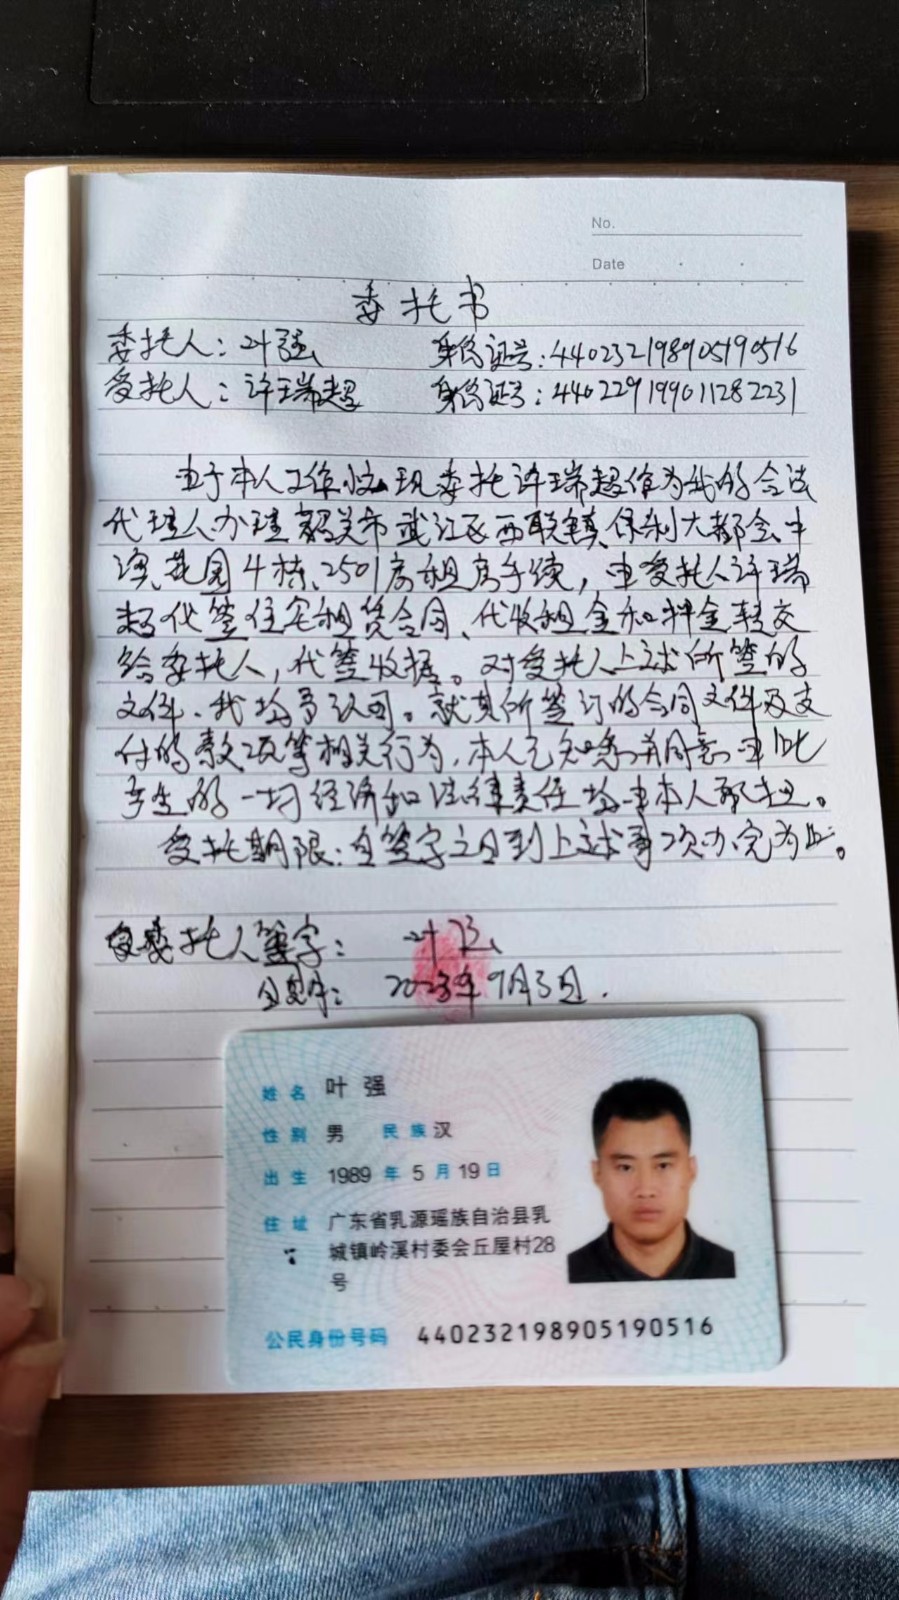 No.
Date
委托书
委托人：叶强 身份证号：440232198905190516
受托人：许瑞超 身份证号：440229199011282231
由于本人工作忙，现委托许瑞超作为我的合法
代理人办理韶关市武江区西联镇保利大都会中
湾花园4栋2501房租房手续，由受托人许瑞
超代签住宅租赁合同、代收租金和押金转交
给委托人，代签收据。对受托人上述所签的
文件、我均予认可。就其所签订的合同文件及支
付的款项等相关行为，本人已知悉并同意，由此
产生的一切经济和法律责任均由本人承担。
受托期限：自签字之日到上述事项办完为止。
委托人签字：叶强
日期：2023年9月3日.
姓名 叶强
性别 男 民族 汉
出生 1989年5月19日
住址 广东省乳源瑶族自治县乳
城镇岭溪村委会丘屋村28
号
公民身份号码 440232198905190516